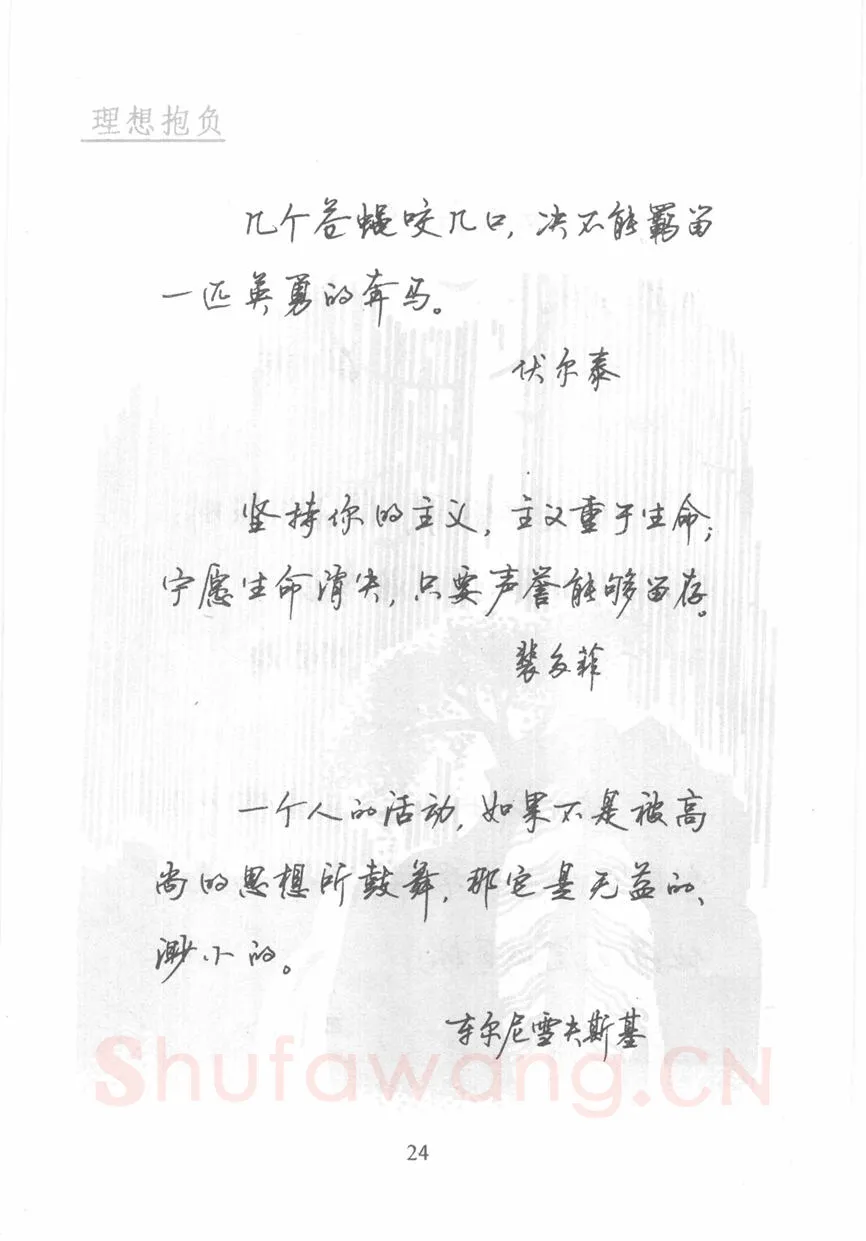 理想抱负
几个苍蝇咬几口，决不能羁留
一匹英勇的奔马。
伏尔泰
坚持你的主义，主义重于生命；
宁愿生命消失，只要声誉能够留存。
裴多菲
一个人的活动，如果不是被高
尚的思想所鼓舞，那它是无益的、
渺小的。
车尔尼雪夫斯基
Shufawang.CN
24